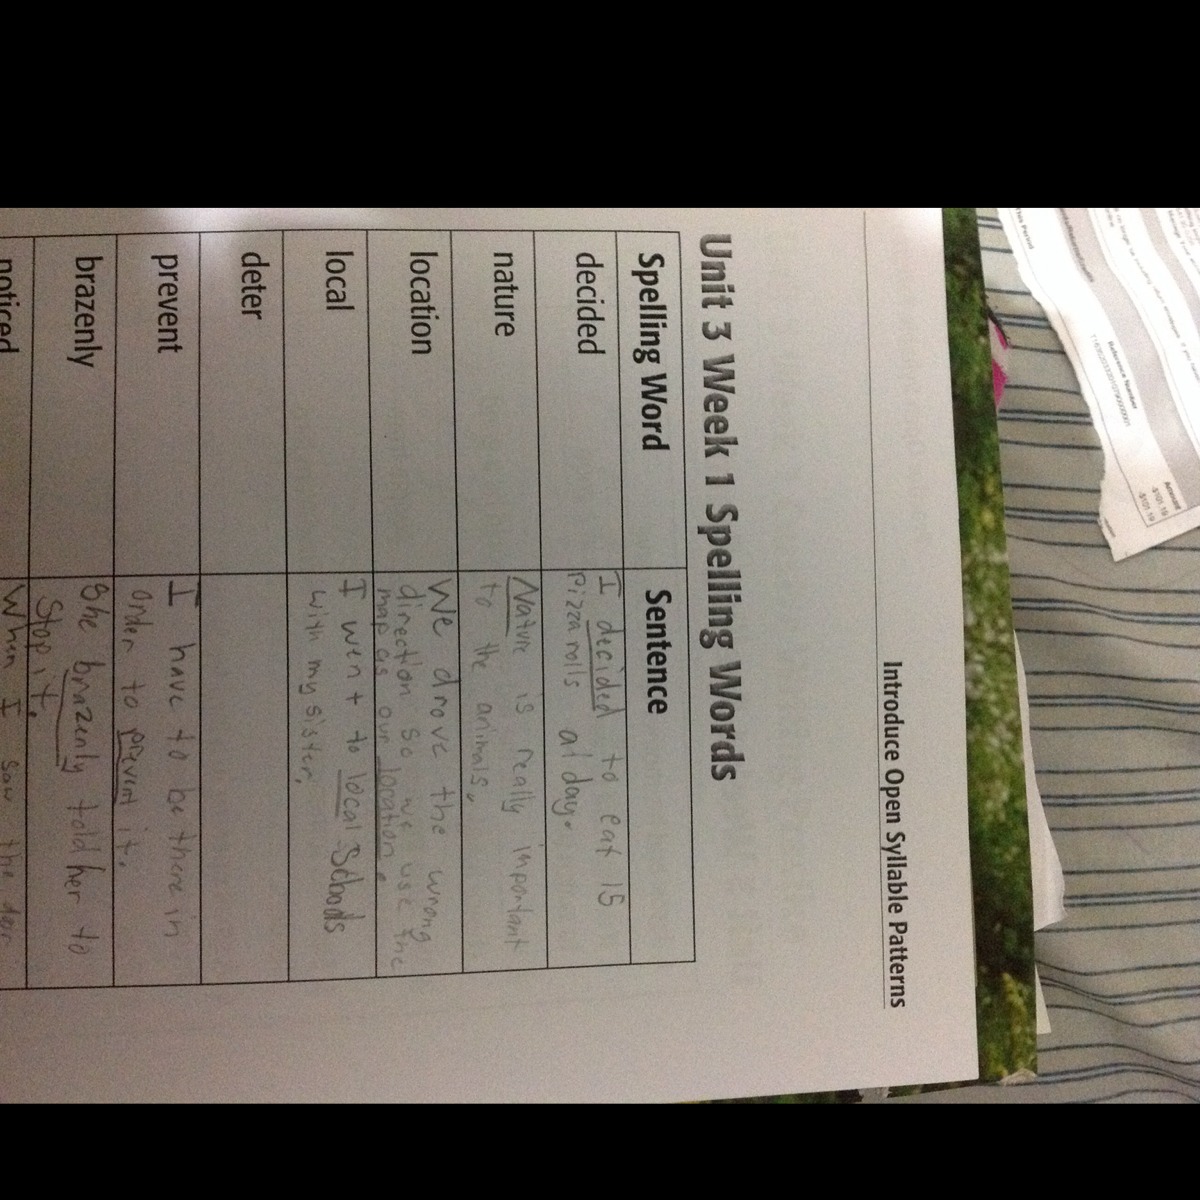 Introduce Open Syllable Patterns
Unit 3 Week 1 Spelling Words
Spelling Word
Sentence
decided
I decided to eat 15
pizza rolls al day.
nature
Nature is really important
to the animals.
location
We drove the wrong
direction so we use the
map as our location.
local
I went to local Schools
with my sister.
deter
prevent
I have to be there in
order to prevent it.
brazenly
She brazenly told her to
Stop it.
noticed
When I saw the
This Period
Reference Number
Amount
-$101.19
-$101.19